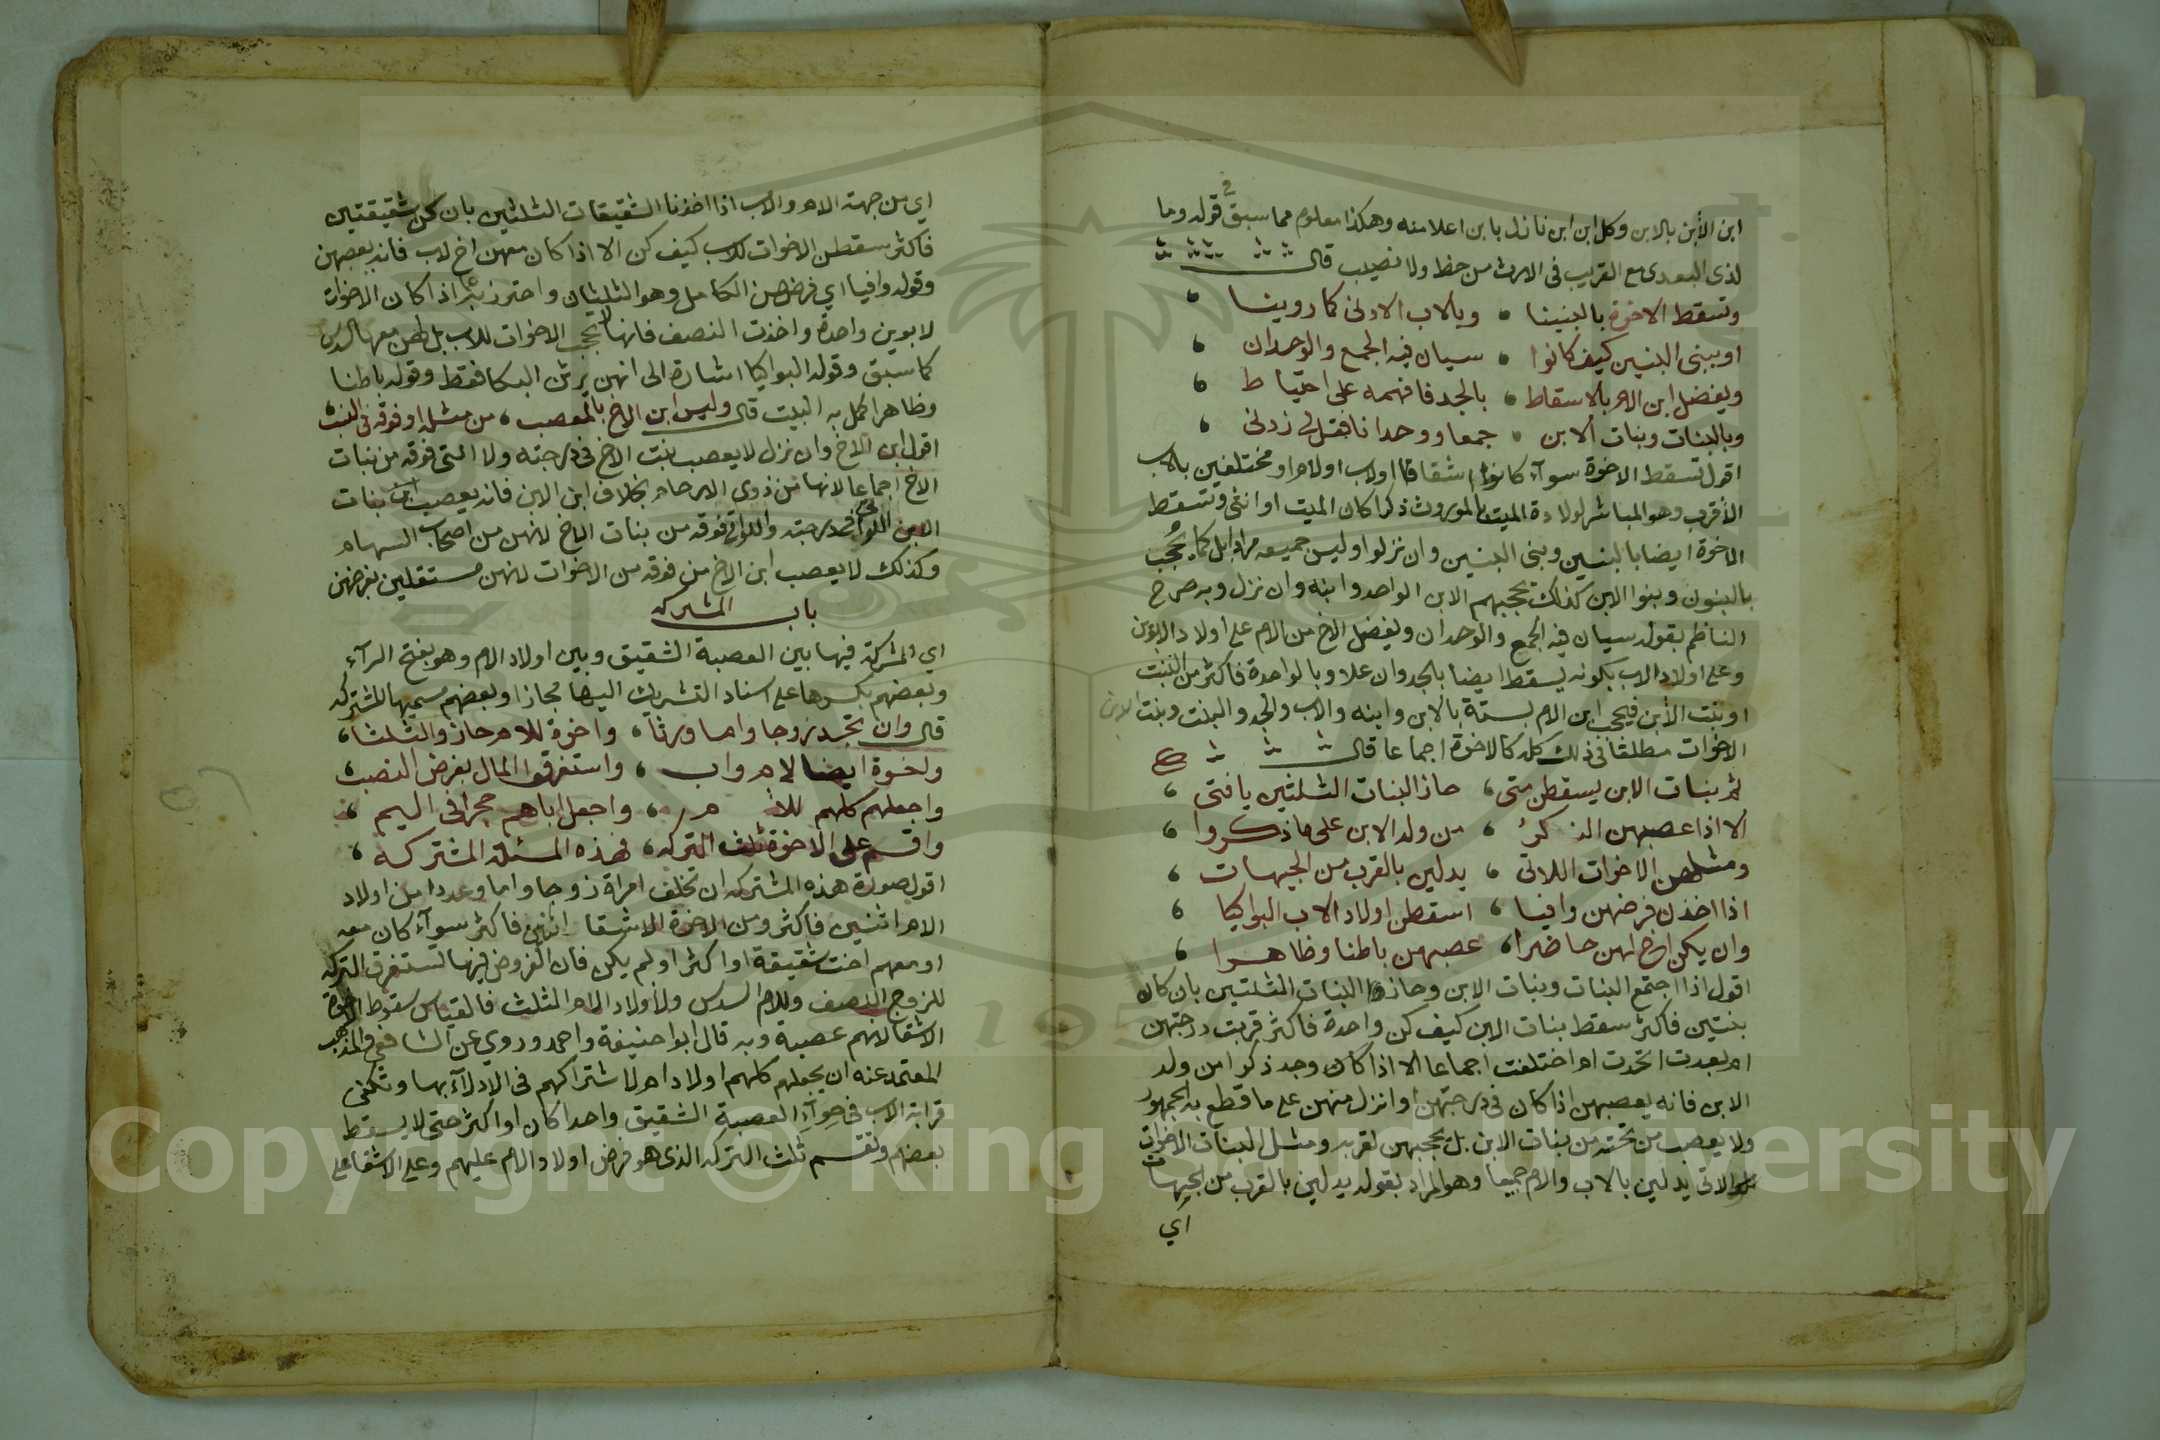 ابن الابن بالابن وكل ابن ابن نازل بابن اعلا منه وهكذا معلوم مما سبق في قوله وما
لذى البعدى مع القريب فى الارث من حظ ولا نصيب قال
وتسقط الاخوة بالبنينا وبالاب الادنى كما روينا
او ببنى البنين كيف كانوا سيان فيه الجمع والوحدان
ويفضل ابن الام بالاسقاط بالجد فافهمه على احتياط
وبالبنات وبنات الابن جمعا ووحدانا فقل لى زدنى
اقول تسقط الاخوة سوآء كانوا اشقاقا اولاب اولام او مختلفين بالاب
الاقرب وهو المباشر لولادة الميت الموروث ذكرا كان الميت او انثى وتسقط
الاخوة ايضا بالبنين وبنى البنين وان نزلوا وليس جميعه مرادا بل كما يحجب
بالبنون وبنوا الابن كذلك يحجبهم الابن الواحد وابنه وان نزل وبه صرح
الناظم بقوله سيان فيه الجمع والوحدان ويفضل الاخ من الام على اولاد الابوين
وعلى اولاد الاب بكونه يسقط ايضا بالجد وان علا وبالواحدة فاكثر من البنت
او بنت الابن فيحجب ابن الام بستة بالابن وابنه والاب والجد والبنت وبنت الابن
الاخوات مطلقا فى ذلك كله كالاخوة اجماعا قال
ثم بنات الابن يسقطن متى حاز البنات الثلثين يافتى
الا اذا عصبهن الذكر من ولد الابن على ما ذكروا
ومثلهن الاخوات اللاتى يدلين بالقرب من الجهات
اذا اخذن فرضهن وافيا اسقطن اولاد الاب البواكيا
وان يكن اخ لهن حاضرا عصبهن باطنا وظاهرا
اقول اذا اجتمع البنات وبنات الابن وحاز البنات الثلثين بان كان
بنتين فاكثر سقط بنات الابن كيف كن واحدة فاكثر قربت درجتهن
ام بعدت اتحدت ام اختلفت اجماعا الا اذا كان وجد ذكرا من ولد
الابن فانه يعصبهن اذا كان فى درجتهن او انزل منهن على ما قطع به الجمهور
ولا يعصب من تحته من بنات الابن بل يحجبهن لقربه ومثل البنات الاخوات
اللاتى يدلين بالاب والام جميعا وهو المراد بقوله يدلين بالقرب من الجهات
اي
اي من جهة الام والاب اذا اخذنا الشقيقات الثلثين بان كن شقيقتين
فاكثر سقطن الاخوات للاب كيف كن الا اذا كان معهن اخ لاب فانه يعصبهن
وقوله وافيا اي فرضهن الكامل وهو الثلثان واحترز به عما اذا كان الاخوات
لابوين واحدة واخذت النصف فانها لا تحجب الاخوات للاب بل لهن معها السدس
كما سبق وقوله البواكيا اشارة الى انهن يرثن البكا فقط وقوله باطنا
وظاهرا كمل به البيت قال وليس ابن الاخ بالمعصب من مثله او فوقه فى النسب
اقول ابن الاخ وان نزل لا يعصب بنت الاخ فى درجته ولا التى فوقه من بنات
الاخ اجماعا لانها من ذوى الارحام بخلاف ابن الابن فانه يعصب بنات
الابن اللواتى فى درجته واللواتى فوقه من بنات الاخ لانهن من اصحاب السهام
وكذلك لا يعصب ابن الاخ من فوقه من الاخوات لانهن مستقلين بفرضهن
باب المشركه
اي المشركة فيها بين العصبة الشقيق وبين اولاد الام وهو بفتح الرآء
وبعضهم بكسرها على اسناد التشريك اليها مجازا وبعضهم يسميها المشتركه
قال وان تجد زوجا واما ورثا واخوة للام حازوا الثلثا
واخوة ايضا لام واب واستغرقوا المال بفرض النصب
واجعلهم كلهم للام واجعل اباهم حجرا فى اليم
واقسم على الاخوة ثلث التركه فهذه المسئلة المشتركه
اقول صورة هذه المشتركه ان تخلف امراة زوجا واما وعددا من اولاد
الام اثنين فاكثر ومن الاخوة الاشقا اثنين فاكثر سوآء كان معه
او معهم اخت شقيقة او اكثر او لم يكن فان الفروض فيها تستغرق التركه
للزوج النصف وللام السدس ولاولاد الام الثلث فالقياس سقوط الاخوة
الاشقا لانهم عصبة وبه قال ابوا حنيفة واحمد وروي عن الشافعي والمذهب
المعتمد عنه ان يجعلهم كلهم اولاد ام لاشتراكهم فى الادلآء بها وتلغى
قرابة الاب فى العصبة الشقيق واحدا كان او اكثر حتى لا يسقط
بعضهم ونقسم ثلث التركه الذى هو فرض اولاد الام عليهم وعلى الاشقا على
Copyright © King Saud University
1957